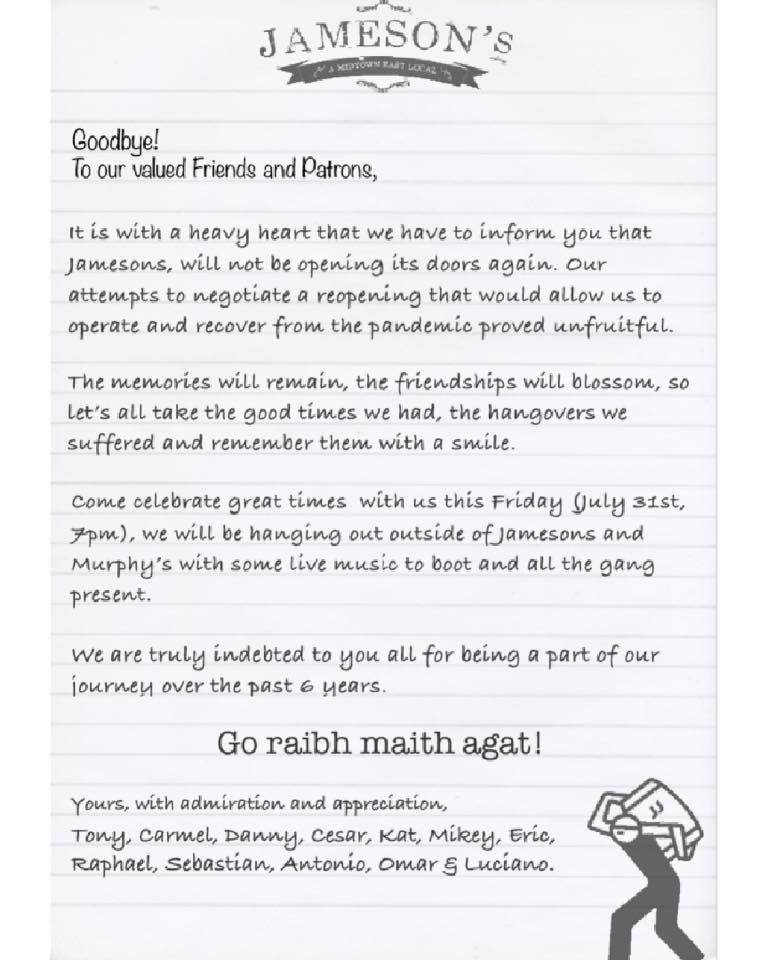 JAMESON'S
A MIDTOWN EAST LOCAL
Goodbye!
To our valued Friends and Patrons,
It is with a heavy heart that we have to inform you that
Jamesons, will not be opening its doors again. Our
attempts to negotiate a reopening that would allow us to
operate and recover from the pandemic proved unfruitful.
The memories will remain, the friendships will blossom, so
let's all take the good times we had, the hangovers we
suffered and remember them with a smile.
Come celebrate great times with us this Friday (July 31st,
7pm), we will be hanging out outside of Jamesons and
Murphy's with some live music to boot and all the gang
present.
We are truly indebted to you all for being a part of our
journey over the past 6 years.
Go raibh maith agat!
Yours, with admiration and appreciation,
Tony, Carmel, Danny, Cesar, Kat, Mikey, Eric,
Raphael, Sebastian, Antonio, Omar & Luciano.